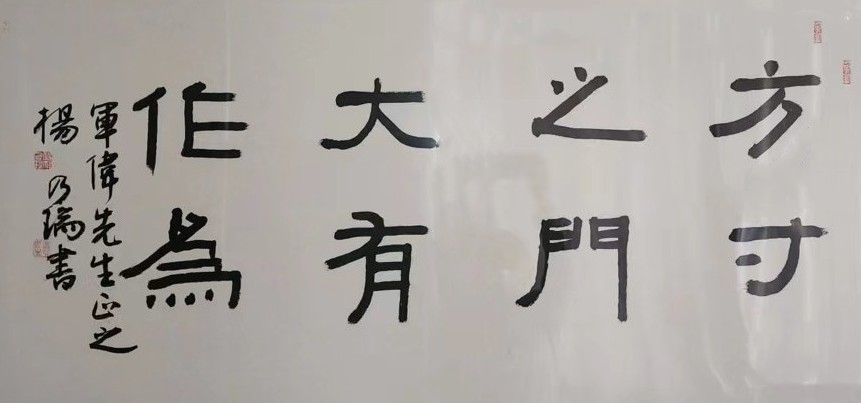 方寸
之門
大有
作為
軍偉先生正之
楊乃瑞書